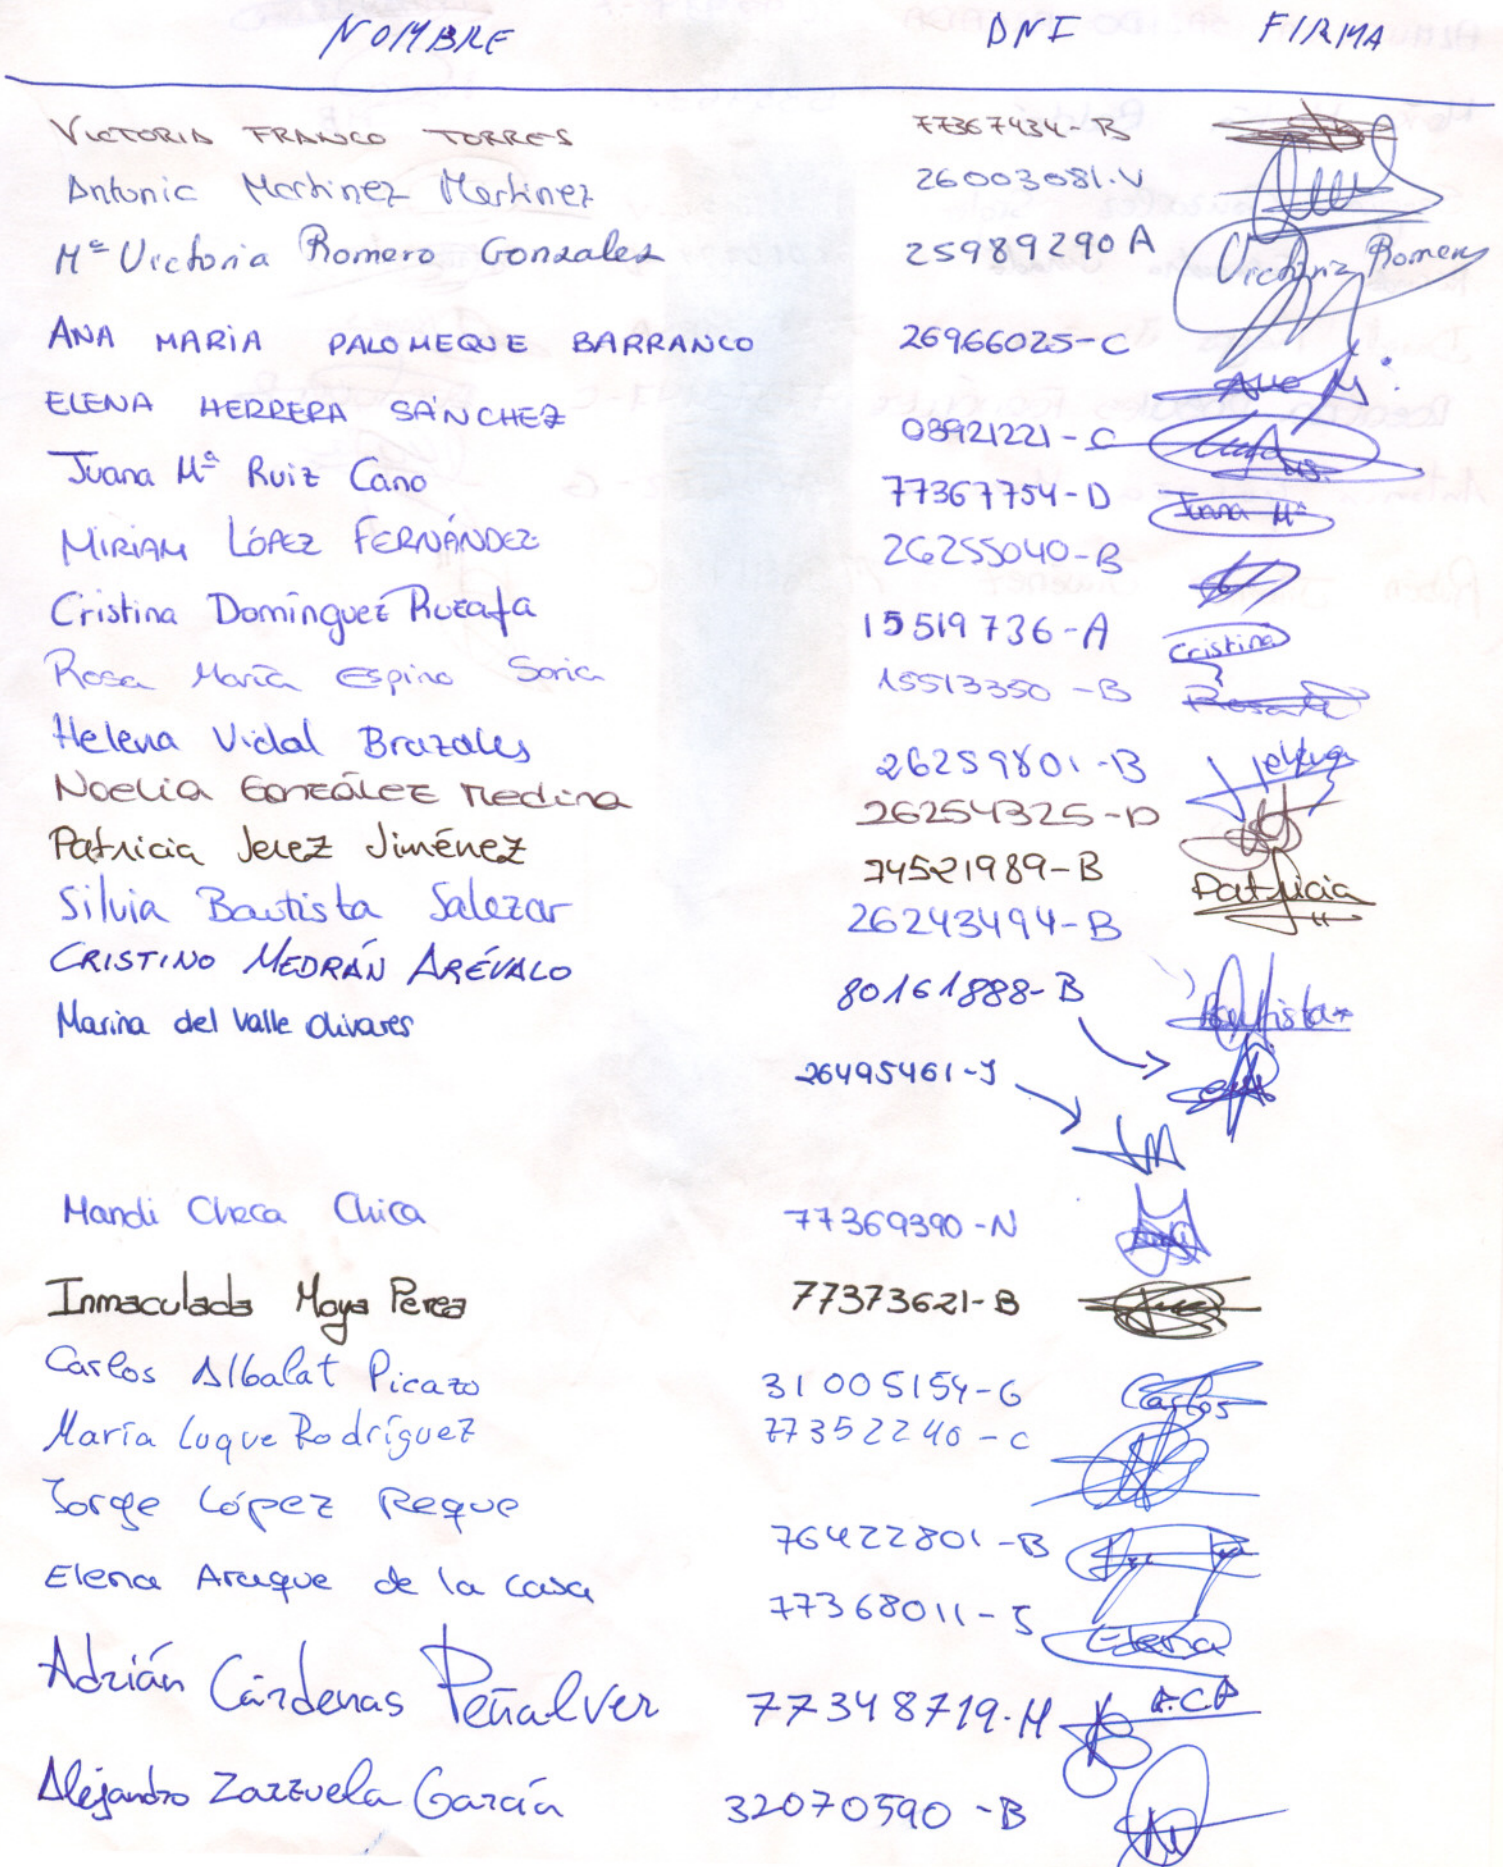 NOMBRE DNI FIRMA
VICTORIA FRANCO TORRES 77367434-B
Antonio Martinez Martinez 26003081-V
Mª Victoria Romero Gonzalez 25989290 A Victoria Romero
ANA MARÍA PALOMEQUE BARRANCO 26966025-C
ELENA HERRERA SÁNCHEZ 03921221-C
Juana Mª Ruiz Cano 77367754-D Juana Mª
MIRIAM LÓPEZ FERNÁNDEZ 26255040-B
Cristina Domínguez Ruzafa 15519736-A Cristina
Rosa María Espino Soria 15513350-B
Helena Vidal Brazales 26259801-B
Noelia González Medina 26254325-D
Patricia Jerez Jiménez 74521989-B Patricia
Silvia Bautista Salazar 26243494-B Bautista
CRISTINO MEDRÁN ARÉVALO 80161888-B
Marina del Valle Olivares 26495461-J
Mandi Checa Chica 77369390-N
Inmaculada Moya Perea 77373621-B
Carlos Albalat Picazo 31005154-G Carlos
María Luque Rodríguez 77352240-C
Jorge López Reque 76422801-B
Elena Araque de la Casa 77368011-J Elena
Adrián Cárdenas Peñalver 77348719-M A.C.P
Alejandro Zarzuela García 32070590-B